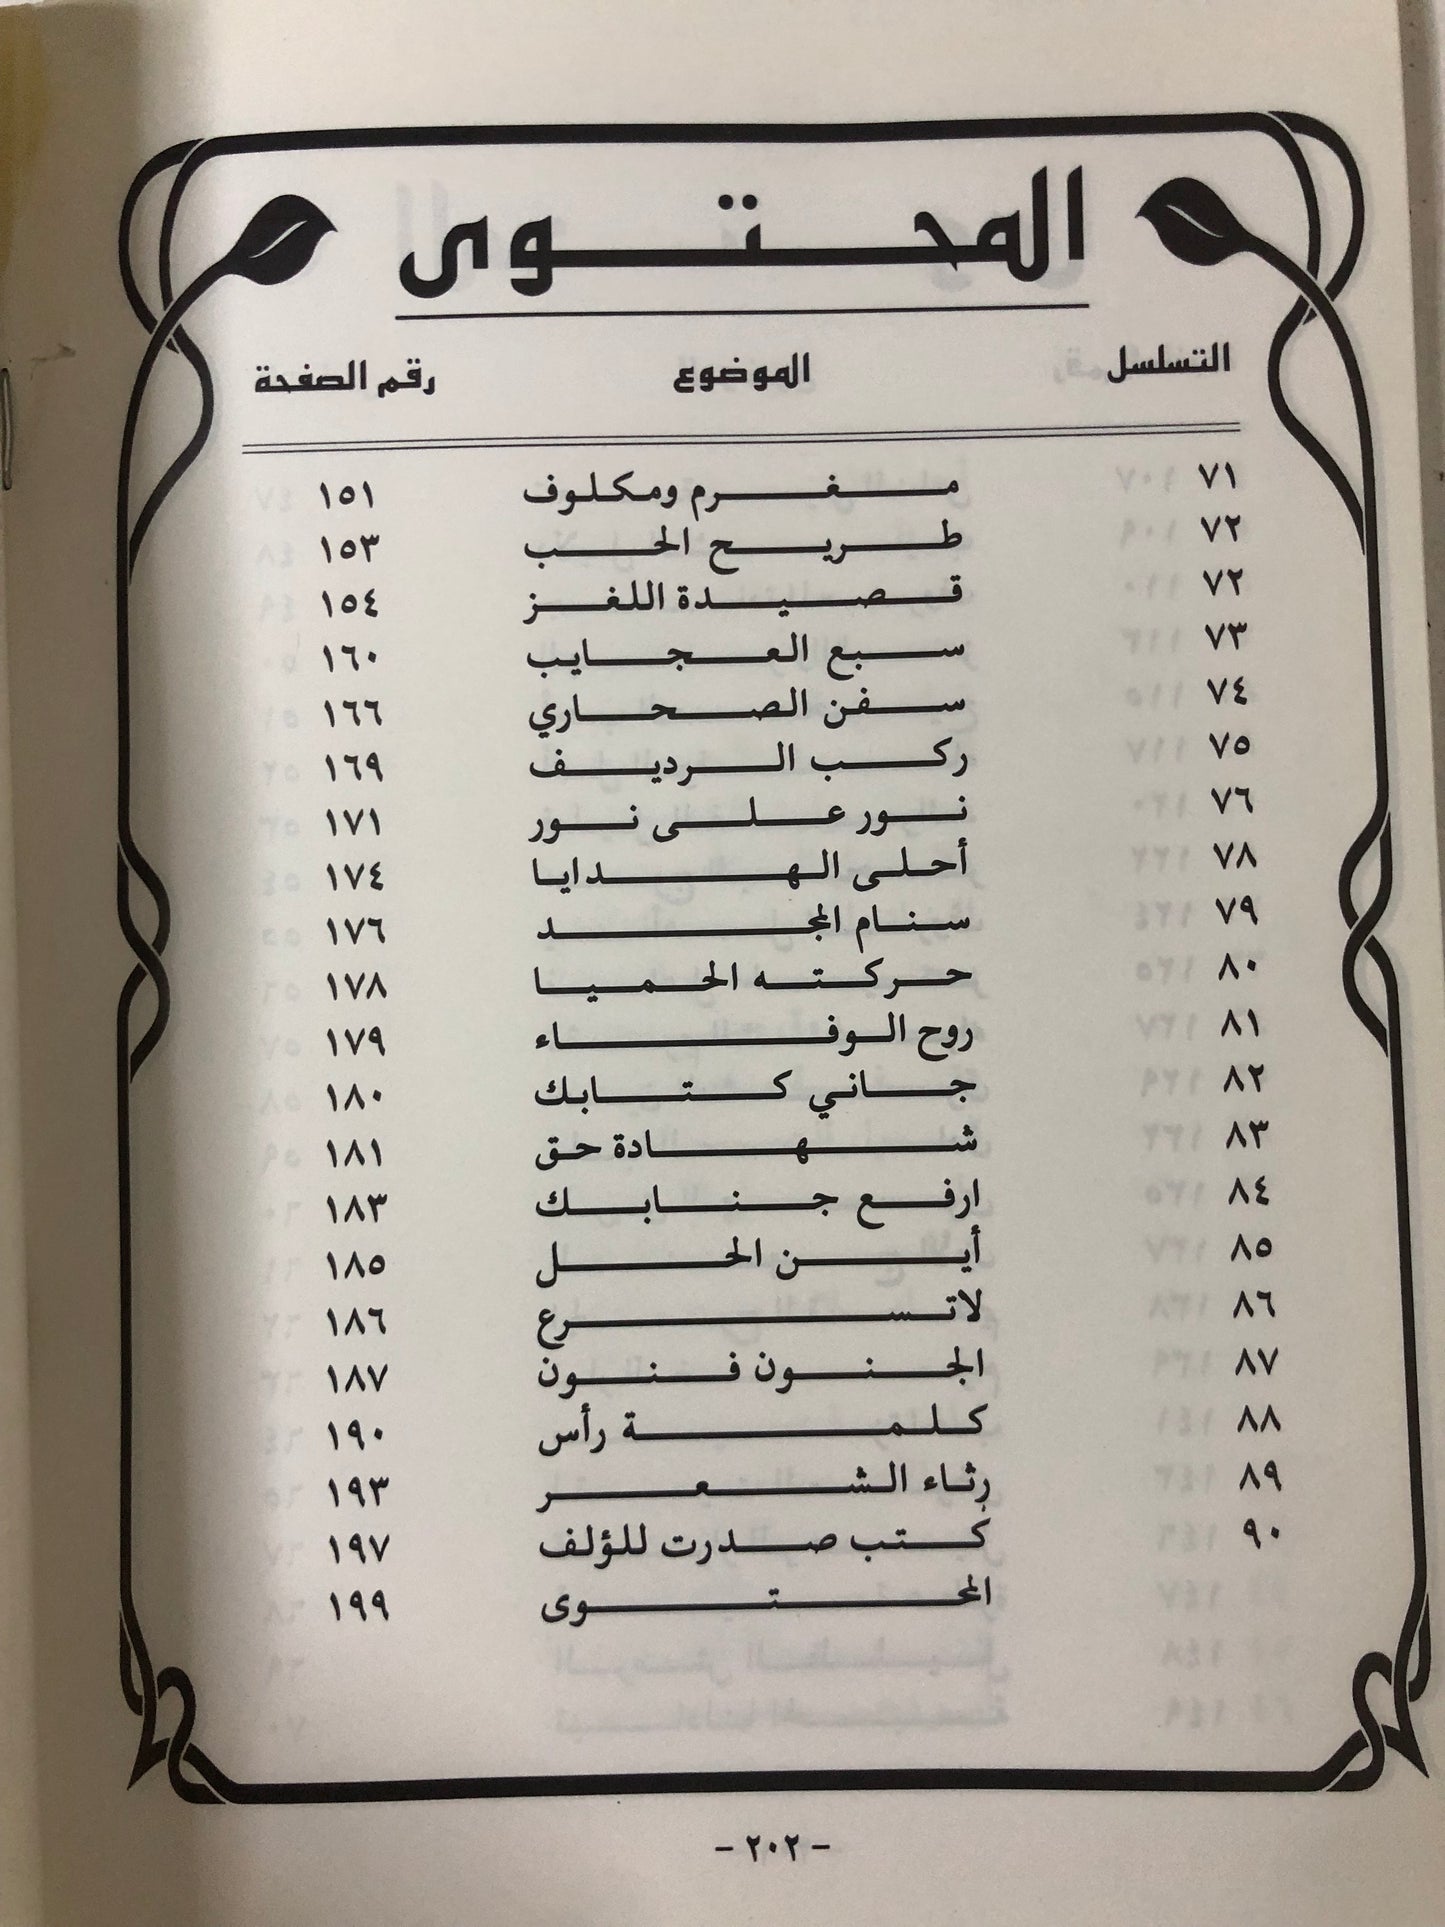 المحتوى
التسلسل الموضوع رقم الصفحة
٧١ مغرم ومكلوف ١٥١
٧٢ طريح الحب ١٥٣
٧٢ قصيدة اللغز ١٥٤
٧٣ سبع العجايب ١٦٠
٧٤ سفن الصحاري ١٦٦
٧٥ ركب الرديف ١٦٩
٧٦ نور على نور ١٧١
٧٨ أحلى الهدايا ١٧٤
٧٩ سنام المجد ١٧٦
٨٠ حركته الحميا ١٧٨
٨١ روح الوفاء ١٧٩
٨٢ جاني كتابك ١٨٠
٨٣ شهادة حق ١٨١
٨٤ ارفع جنابك ١٨٣
٨٥ أين الحل ١٨٥
٨٦ لاتسرع ١٨٦
٨٧ الجنون فنون ١٨٧
٨٨ كلمة رأس ١٩٠
٨٩ رِثاء الشعر ١٩٣
٩٠ كُتب صدرت للؤلف ١٩٧
المحتوى ١٩٩
- ٢٠٢ -